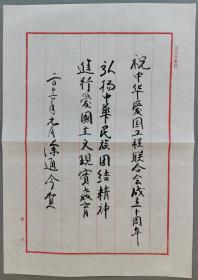 祝中华爱国工程联合会成立十周年
弘扬中華民族团结精神
進行爱國主义现實教育
二〇〇二年元月涂通今贺